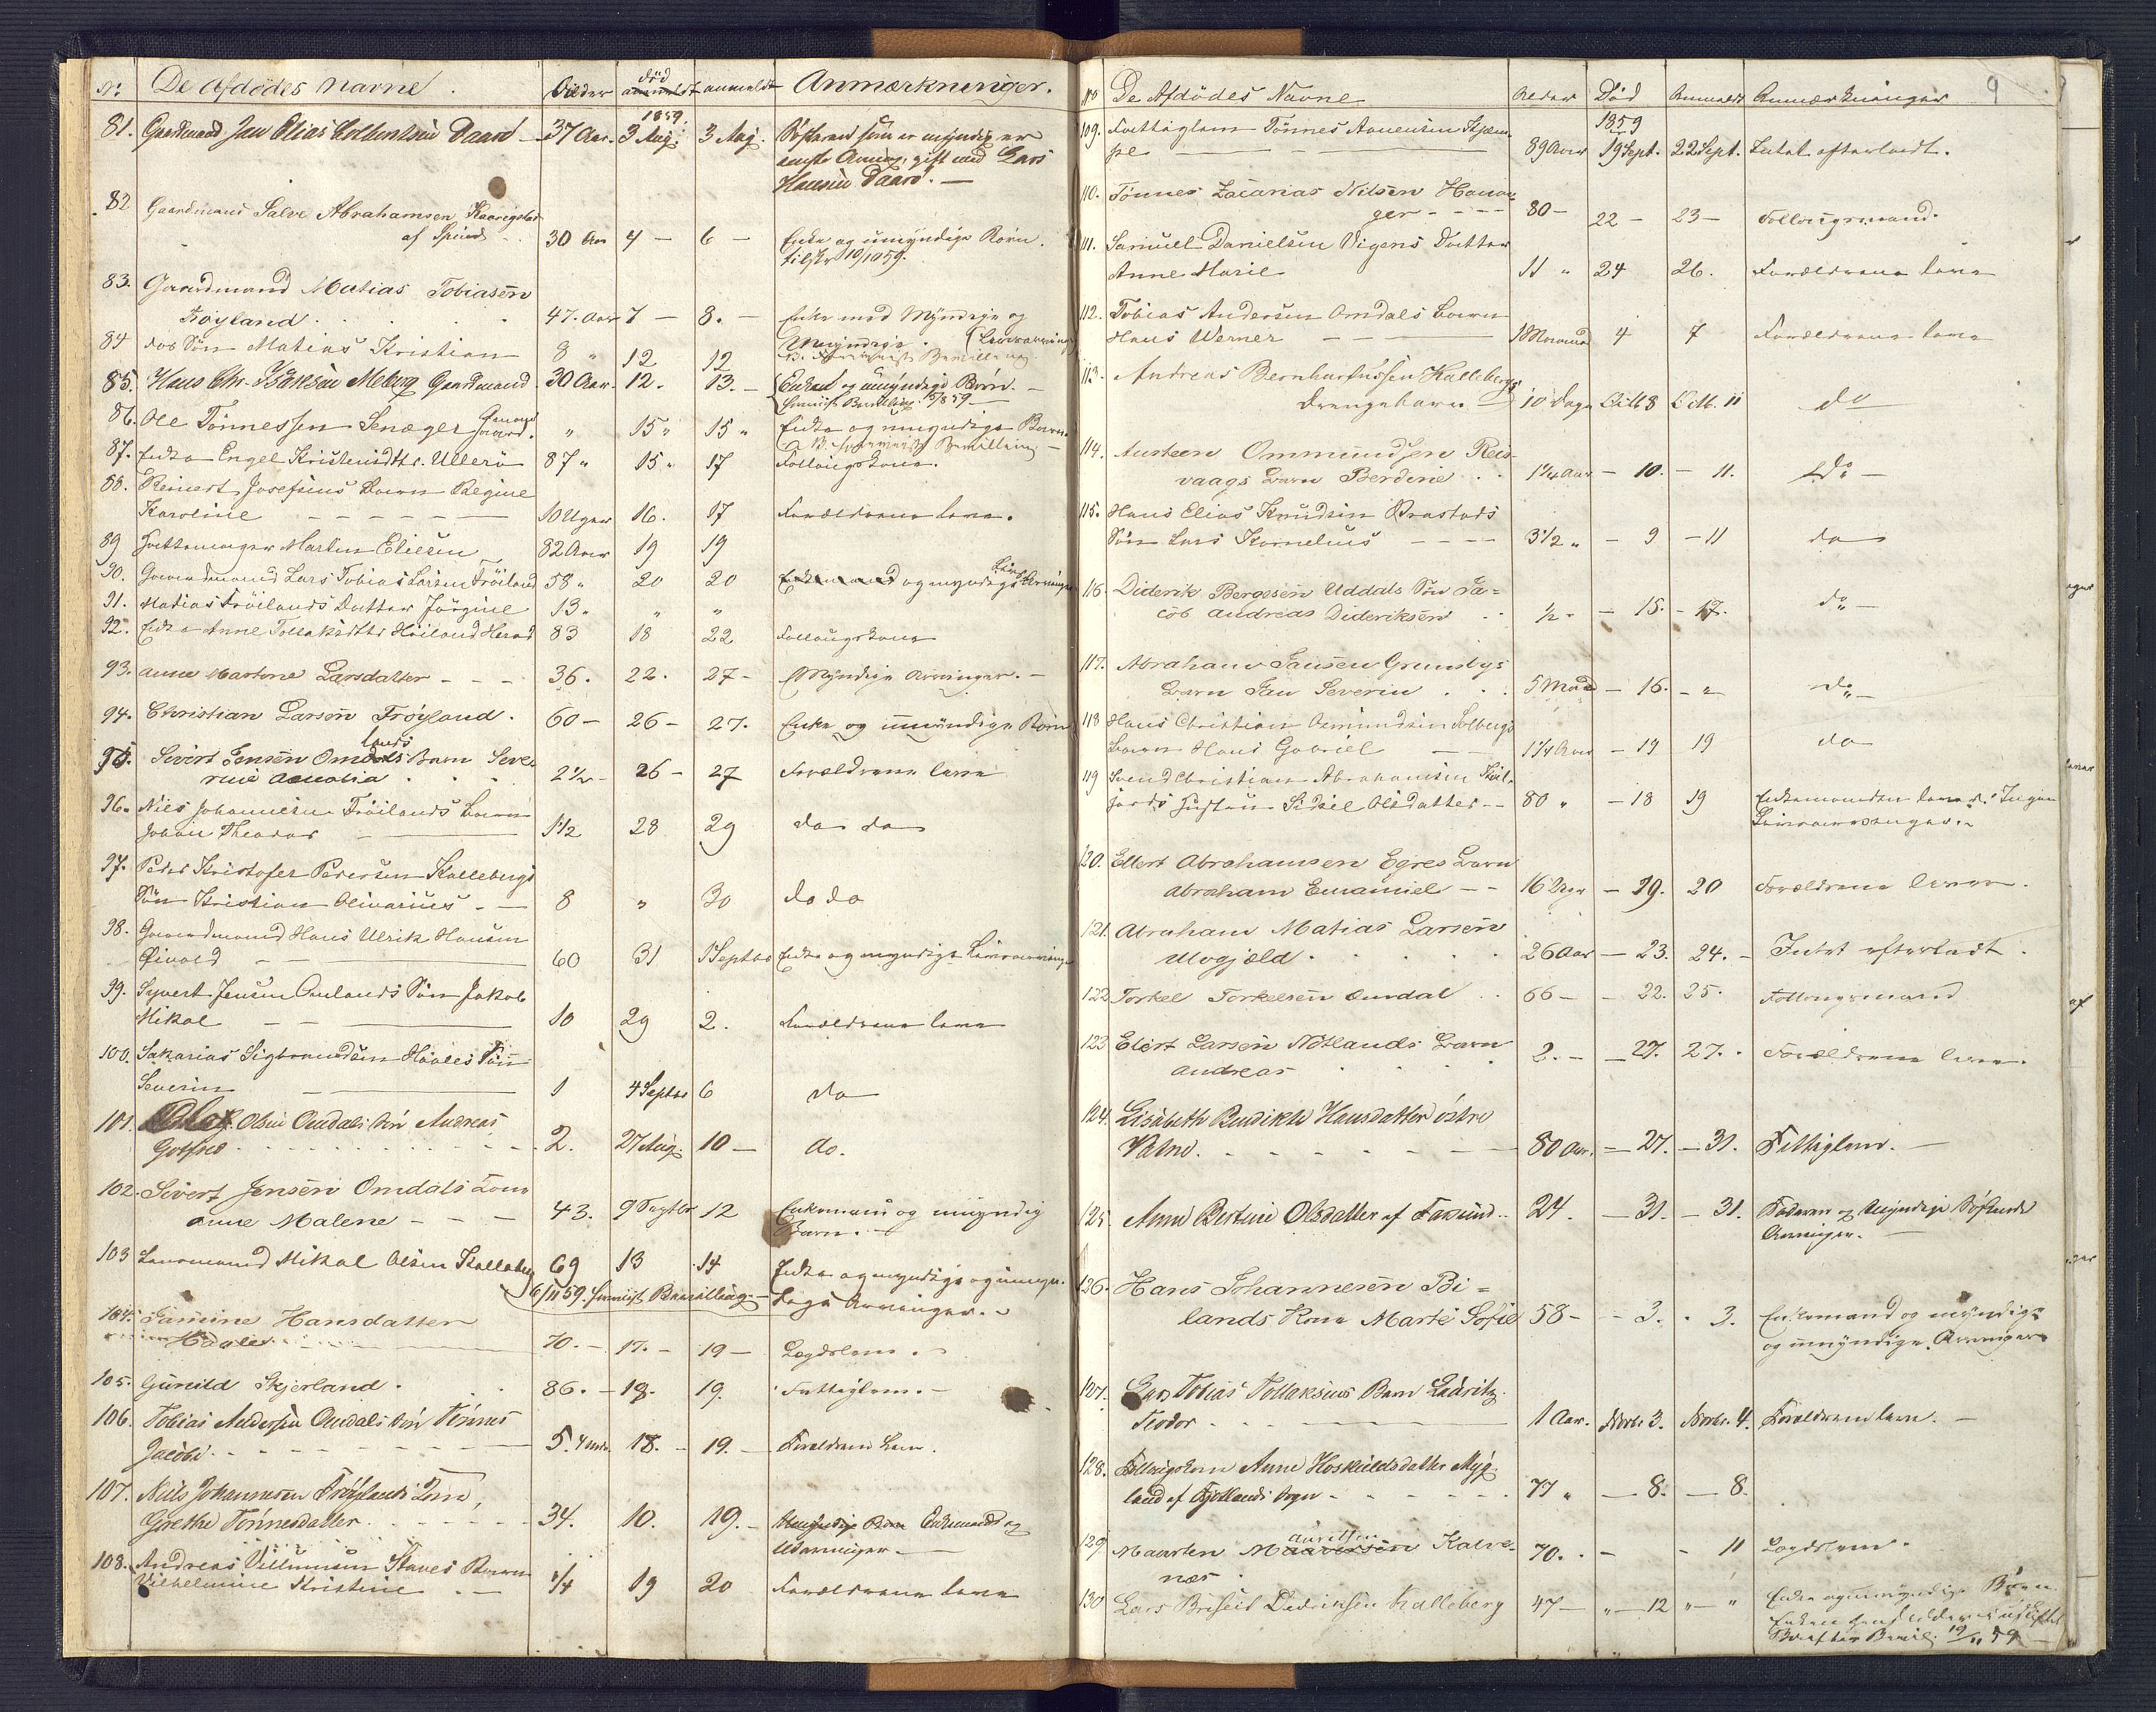 No De Afdødes Navne. Alder død anmeldt Anmærkninger.
1859.
81. Gaardmand Jan Elias Daard 37 Aar. 3 Aug. 3 Aug. Søsteren som er myndig er
eneste Arving, gift med Lars
Hansen Daard.
82 Gaardmand Salve Abrahamsen
af Spind 30 Aar 4 — 6 — Enke og umyndige Børn.
10/10 59.
83. Gaardmand Matias Tobiasen
Frøyland 47. Aar 7 — 8. — Enke med Myndige og
Umyndige Livsarvinger
84 dos Søn Matias Kristian 8 " 12 12
85. Hans Chr. Isaksen Meberg Gaardmand 30 Aar. 12. 13. — Enke og umyndige Børn.
15/8 59
86. Ole Tønnessen Senæger " 15 " 15 " Enke og umyndige Børn.
87. Enke Engel Kristensdtr. Ullerø 87 " 15 " 17 Follaugskone.
88. Reinert Josefsens Barn Regine
Karoline 10 Uger 16. 17 Forældrene leve.
89 Martin Eliesen 82 Aar 19 19
90. Gaardmand Lars Tobias Larsen Frøiland 58 " 20 20 Enkemand og myndige Livsarvinger
91. Matias Frøilands Datter Jørgine 13 " " "
92. Enke Anne Tollaksdtr Høiland Herad 83 18 22 Follaugskone
93. Anne Martine Larsdatter 36. 22. 27 — Myndige Arvinger. —
94. Christian Larsen Frøyland. 60 — 26 — 27. Enke og umyndige Børn
95. Sivert Jensen Omlands Barn Seve-
rine Amalia 2 1/2 — 26 — 27 Forældrene leve
96. Niels Johannesen Frøilands Barn
Johan Theodor 1 1/2 28 29 do do
97. Peder Kristofer Pedersen Kallebergs
Søn Kristian Olivarius 8 " 30 do do
98. Gaardmand Hans Ulrik Hansen
Eivold 60 31 1 Septbr Enke og myndige Livsarvinger
99. Syvert Jensen Omlands Søn Jakob
Mikal 10 29 2. Forældrene leve
100. Sakarias Sigbrandsen Haales Søn
Severin 1 4 Septbr 6 do
101. Olsen Omdals Søn Andreas
Gotfred 2. 27 Aug. 10 — do.
102. Sivert Jensen Omdals Kone
Anne Malene 43. 9 Septbr 12 Enkemand og umyndig
Barn.
103 Mikal Olsen Kalleberg 69 13 14 Enke og myndige og umyn-
dige Arvinger.
6/11 59.
104. Jamine Hansdatter
Haale 70. — 17. — 19 — Lægdslem.
105. Gunild Skjerland. 86. — 18. 19. Fattiglem. —
106. Tobias Andersen Omdals Søn Tønnes
Jacobi 5. 18. — 19. — Forældrene Leve.
107. Niels Johannesen Frøylands Kone,
Grethe Tønnesdatter 34. 10. 19. — Umyndige Børn Enkemand og
Udarvinger.
108. Andreas Villumsen Staves Barn
Vilhelmine Kristine 1/4 19 20 Forældrene leve
No De Afdødes Navne Alder Død Anmeldt Anmærkninger 9
1859
109. Fattiglem Tønnes Aanensen Kjem-
pe 89 Aar 19 Sept. 22 Sept. Intet efterladt.
110. Tønnes Zacarias Nilsen Hanan-
ger 80 — 22 — 23 — Follaugsmand.
111. Samuel Danielsen Vigens Datter
Anne Marie 11 " 24 26. Forældrene leve
112. Tobias Andersen Omdals Barn
Hans Werner 1 Maaned 4 7 Forældrene leve
113. Andreas Bernhartussen Kallebergs
Drengebarn 10 Dage Octb 8 Octb. 11 do
114. Austeen Ommundsen Reis-
vaags Barn Berdine 1 1/4 Aar — 10. — 11. do —
115. Hans Elias Knudsen Brastads
Søn Lars Kornelius 3 1/2 " — 9 — 11 do
116. Diderik Bergesen Uddals Søn Ja=
cob Andreas Dideriksen 1/2 " — 15. — 17. do —
117. Abraham Jansen Grunsbys
Barn Jan Severin 5 Mmd — 16. — " do —
118 Hans Christian Osmundsen Solbergs
Barn Hans Gabriel 1 1/4 Aar — 17 19 do
119 Svend Christian Abrahamsen
Hustru Sidsel Olsdatter 80 " — 18 19 Enkemanden lever. Ingen
Livsarvinger.
120. Ellert Abrahamsen Egres Barn
Abraham Emanuel 16 Uger — 19. 20 Forældrene leve.
121. Abraham Matias Larsen
Mogjæld 26 Aar — 23. 24. — Intet efterladt.
122 Torkel Torkelsen Omdal 66 — — 22. 25. Follaugsmand
123 Elert Larsen Nøtlands Barn
Andreas 2. — — 27. 27. Forældrene leve.
124. Lisabeth Bendikte Hansdatter østre
Vatne. 80 Aar. — 27. — 31. Fattiglem. —
125 Anne Bertine Olsdatter af Farsund 24. — 31. — 31. Faderen og Umyndige Søskende
Arvinger.
126. Hans Johannesen Bi=
lands Kone Marte Sofie 58 — — 3. . 3. Enkemand og myndige
og umyndige Arvinger
127. Lars Tobias Tollaksens Barn Ladvitz
Teodor 1 Aar. Novbr. 3. Novbr. 4. Forældrene leve. —
128. Follaugskone Anne Hoskuldsdatter Myg-
land af Fjotlands Sogn 77 " — 8. — 8.
129 Maarten Mauritsen Kalve-
næs 70. . — — 11 Lægdslem.
130 Lars Briseid Didriksen Kalleberg 47 — " — 12 " — " Enke og umyndige Børn.
19/11 59